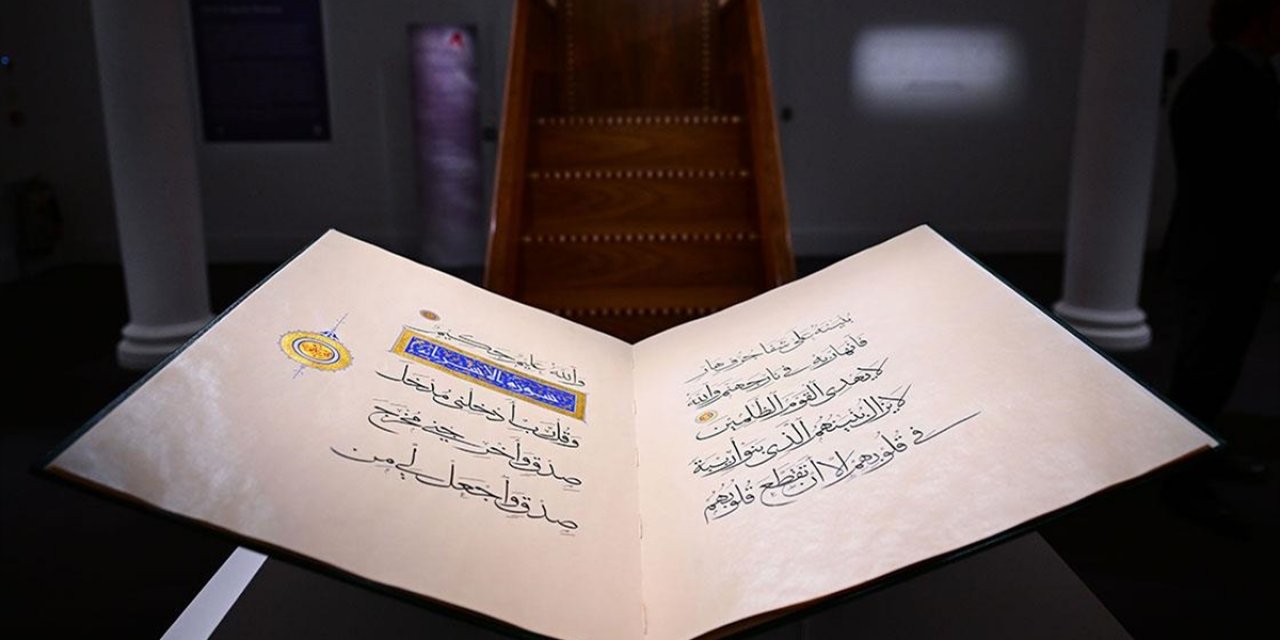 بنينه على شفا جرف هار
فانهار به في نار جهنم والله
لا يهدي القوم الظلمين
لا يزال بنينهم الذي بنوا ريبة
في قلوبهم إلا أن تقطع قلوبهم
والله عليم حكيم
سورة
وقل رب أدخلني مدخل
صدق وأخرجني مخرج
صدق واجعل لي من